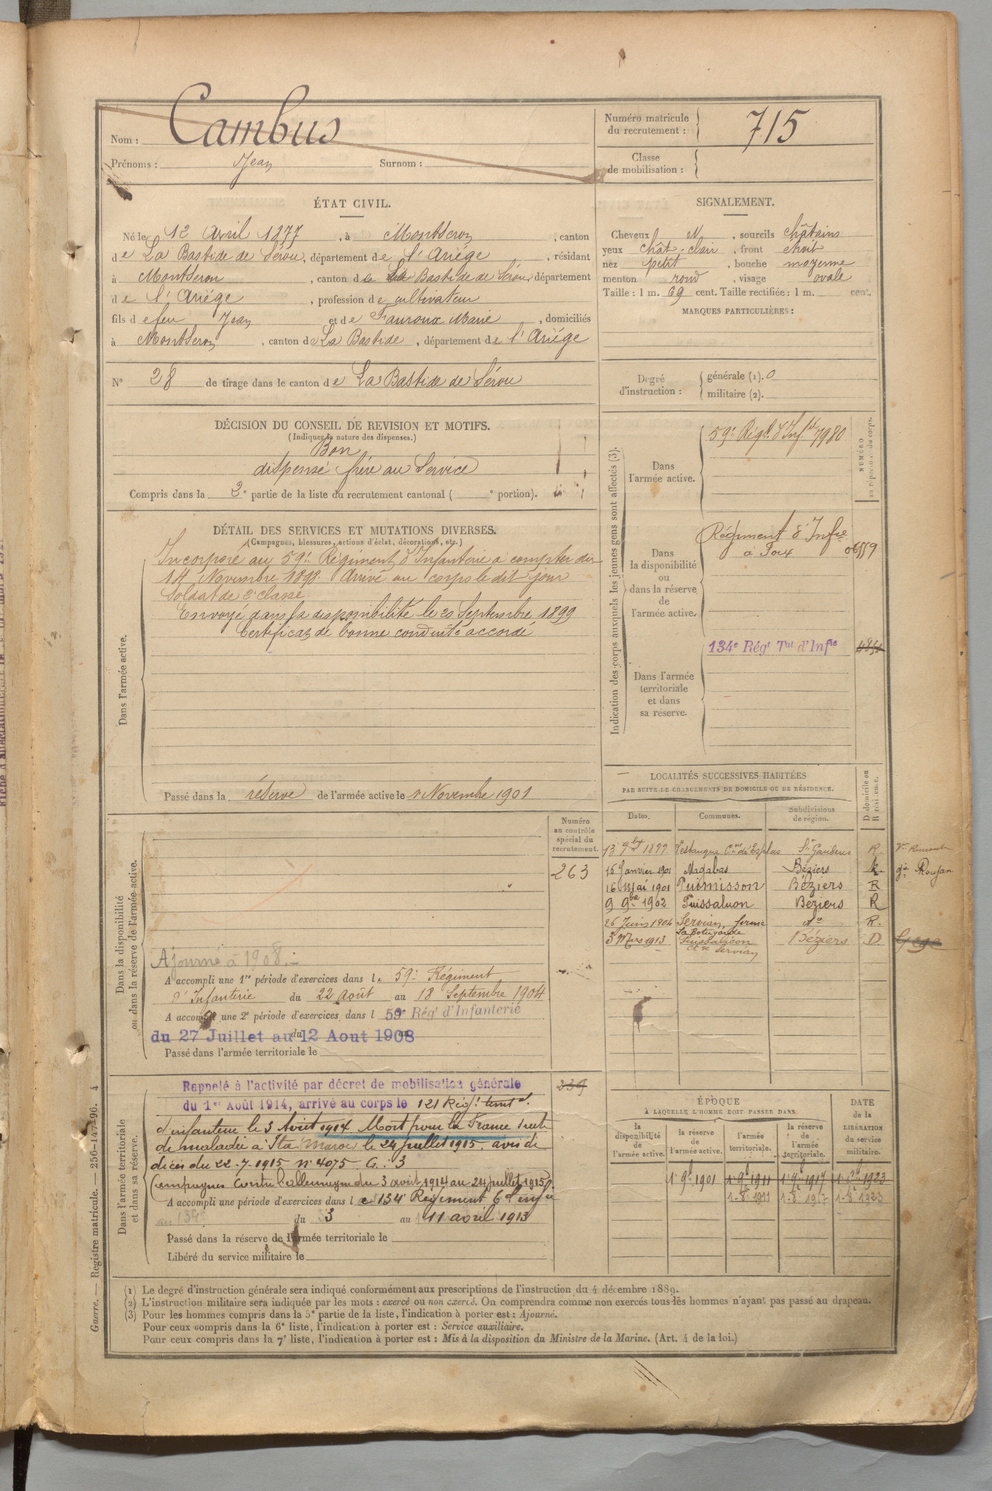 Nom : Cambus
Prénoms : Jean Surnom :
Numéro matricule du recrutement : 715
Classe de mobilisation :
ÉTAT CIVIL.
Né le 12 Avril 1877, à Montseron, canton
de La Bastide de Sérou, département de l'Ariége, résidant
à Montseron, canton de La Bastide de Sérou, département
de l'Ariége, profession de cultivateur
fils de feu Jean et de Fauroux Marie, domiciliés
à Montseron, canton de La Bastide, département de l'Ariége
N° 28 de tirage dans le canton de La Bastide de Sérou
SIGNALEMENT.
Cheveux N, sourcils châtains
yeux chât-clair, front étroit
nez petit, bouche moyenne
menton rond, visage ovale
Taille : 1 m. 69 cent. Taille rectifiée : 1 m. cent.
MARQUES PARTICULIÈRES :
Degré d'instruction : générale (1). 0
militaire (2).
DÉCISION DU CONSEIL DE REVISION ET MOTIFS.
(Indiquer la nature des dispenses.)
Bon
dispensé frère au Service
Compris dans la 2e partie de la liste du recrutement cantonal ( e portion).
DÉTAIL DES SERVICES ET MUTATIONS DIVERSES.
(Campagnes, blessures, actions d'éclat, décorations, etc.)
Dans l'armée active.
Incorporé au 59e Régiment d'Infanterie à compter du
14 Novembre 1898. Arrivé au corps le dit jour
Soldat de 2e classe
Envoyé dans la disponibilité le 20 Septembre 1899
Certificat de bonne conduite accordé
Passé dans la réserve de l'armée active le 1 Novembre 1901
Indication des corps auxquels les jeunes gens sont affectés (3).
NUMÉRO
Dans l'armée active.
59e Régt d'Infie 7980
Dans la disponibilité ou dans la réserve de l'armée active.
Régiment d'Infie
à Foix 06559
Dans l'armée territoriale et dans sa réserve.
134e Régt Tal d'Infie
LOCALITÉS SUCCESSIVES HABITÉES
PAR SUITE DE CHANGEMENTS DE DOMICILE OU DE RÉSIDENCE.
Dates. Communes. Subdivisions de région. D domicile ou R résidence.
St Gaudens R
15 Janvier 1901 Magalas Béziers R
16 Mai 1901 Puimisson Béziers R
9 9bre 1902 Puissalicon Béziers R
26 Juin 1904 Servian, ferme do R.
3 Mars 1913 Puissalicon Béziers D
cne Servian
Dans la disponibilité ou dans la réserve de l'armée active.
Numéro au contrôle spécial du recrutement.
263
Ajourné à 1908
A accompli une 1re période d'exercices dans le 59e Régiment
d'Infanterie du 22 Août au 18 Septembre 1904
A accompli une 2e période d'exercices dans l 59e Rég d'Infanterie
du 27 Juillet au 12 Aout 1908
Passé dans l'armée territoriale le
Dans l'armée territoriale et dans sa réserve.
Rappelé à l'activité par décret de mobilisation générale
du 1er Août 1914, arrivé au corps le 121 Régt territal
d'infanterie le 3 Août 1914. Mort pour la France suite
de maladie à Ita Maroc le 24 juillet 1915. avis de
décès du 22-7-1915 n° 4075 G. 3
Campagnes Contre l'allemagne du 3 août 1914 au 24 juillet 1915
A accompli une période d'exercices dans l e 134 Régiment
du 3 au 11 avril 1913
Passé dans la réserve de l'armée territoriale le
Libéré du service militaire le
ÉPOQUE
À LAQUELLE L'HOMME DOIT PASSER DANS
la disponibilité de l'armée active. la réserve de l'armée active. l'armée territoriale. la réserve de l'armée territoriale.
DATE de la LIBÉRATION du service militaire.
1 9bre 1901 1 9bre 1911 1 9bre 1917 1 9bre 1923
1-8-1911 1-8-1917 1-8-1923
(1) Le degré d'instruction générale sera indiqué conformément aux prescriptions de l'instruction du 4 décembre 1889.
(2) L'instruction militaire sera indiquée par les mots : exercé ou non exercé. On comprendra comme non exercés tous les hommes n'ayant pas passé au drapeau.
(3) Pour les hommes compris dans la 5e partie de la liste, l'indication à porter est : Ajourné.
Pour ceux compris dans la 6e liste, l'indication à porter est : Service auxiliaire.
Pour ceux compris dans la 7e liste, l'indication à porter est : Mis à la disposition du Ministre de la Marine. (Art. 4 de la loi.)
Guerre. — Registre matricule. — 256-147-96. 4